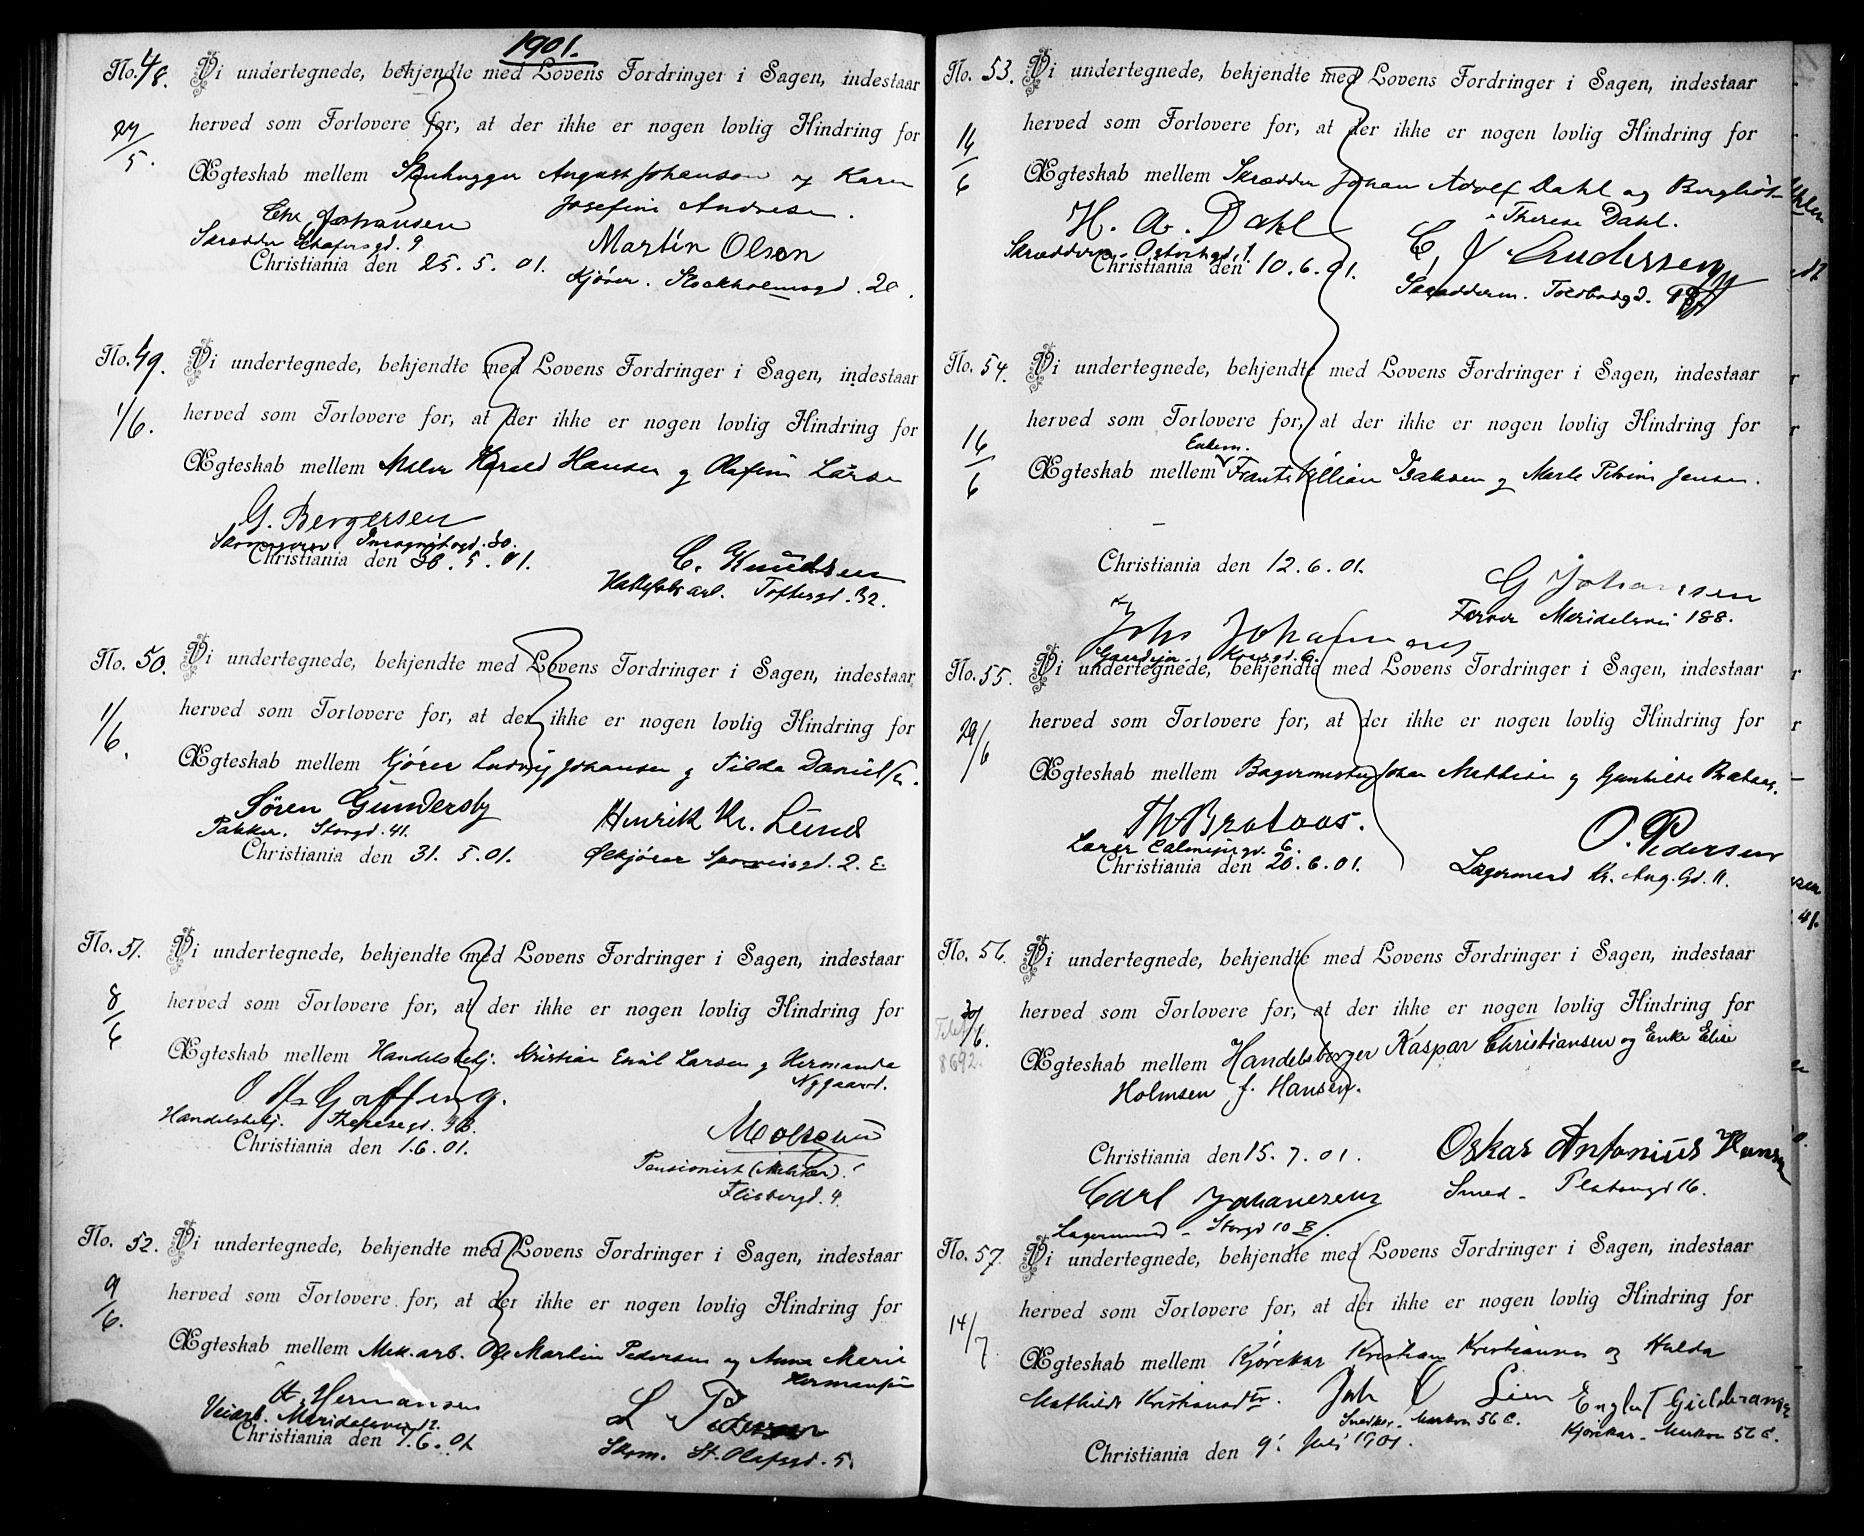 1901.
No. 48. Vi undertegnede, bekjendte med Lovens Fordringer i Sagen, indestaar
herved som Forlovere for, at der ikke er nogen lovlig Hindring for
27/5.
Ægteskab mellem Stenhugger August Johansen og Karen
Josefine Andresen.
Chr. Johansen
Skrædder Schafersgd. 9
Martin Olsen
Christiania den 25.5.01.
Kjører. Stockholmsgd. 20.
No. 49. Vi undertegnede, bekjendte med Lovens Fordringer i Sagen, indestaar
1/6. herved som Forlovere for, at der ikke er nogen lovlig Hindring for
Ægteskab mellem Maler Harald Hansen og Olefine Larsen
G. Bergersen
Incognitogd. 30.
Christiania den 30.5.01.
C. Knudsen
Toftesgd. 32.
No. 50. Vi undertegnede, bekjendte med Lovens Fordringer i Sagen, indestaar
1/6. herved som Forlovere for, at der ikke er nogen lovlig Hindring for
Ægteskab mellem Kjører Ludvig Johansen og Tilda Danielsen.
Søren Gundersby
Pakker. Storgd. 41.
Henrik Kr. Lund
Christiania den 31.5.01.
Ølkjører 2. E
No. 51. Vi undertegnede, bekjendte med Lovens Fordringer i Sagen, indestaar
8/6 herved som Forlovere for, at der ikke er nogen lovlig Hindring for
Ægteskab mellem Handelsbetj. Kristian Emil Larsen og Hermanda
Nygaard.
Handelsbetj. Theresegd.
Christiania den 1.6.01.
Pensionist (Militær).
4.
No. 52. Vi undertegnede, bekjendte med Lovens Fordringer i Sagen, indestaar
9/6. herved som Forlovere for, at der ikke er nogen lovlig Hindring for
Ægteskab mellem Mek. arb. Ole Martin Pedersen og Anna Marie
Hermansen
A. Hermansen
Veiarb. Maridalsvei 12.
L Pedersen
Christiania den 7.6.01
Skom. St. Olafsgd. 5.
No. 53. Vi undertegnede, bekjendte med Lovens Fordringer i Sagen, indestaar
herved som Forlovere for, at der ikke er nogen lovlig Hindring for
14/6
Ægteskab mellem Skrædder Johan Adolf Dahl og Bergliot
Therese Dahl.
H. A. Dahl
C. J. Andersen
Skrædderm.
Christiania den 10.6.01.
Skrædderm. Toldbodgd.
No. 54. Vi undertegnede, bekjendte med Lovens Fordringer i Sagen, indestaar
herved som Forlovere for, at der ikke er nogen lovlig Hindring for
16/6
Enkem.
Ægteskab mellem Frants Villian Isaksen og Marte Petrine Jensen.
Christiania den 12.6.01.
G Johansen
Farver Maridalsvei 188.
Johs Johannesen
No. 55. Vi undertegnede, bekjendte med Lovens Fordringer i Sagen, indestaar
29/6 herved som Forlovere for, at der ikke er nogen lovlig Hindring for
Ægteskab mellem Bagermester Johan Mathisen og Gunhilde Brataas.
Th Brataas.
Lærer Calmeyergd. 6.
O. Pedersen
Christiania den 20.6.01.
Lagermand Kr. Aug. Gd. 11.
No. 56. Vi undertegnede, bekjendte med Lovens Fordringer i Sagen, indestaar
30/6. herved som Forlovere for, at der ikke er nogen lovlig Hindring for
8692.
Ægteskab mellem Handelsborger Kaspar Christiansen og Enke Elise
Holmsen f. Hansen.
Christiania den 15.7.01.
Oskar Antonius Hansen
Smed - Platougd 16.
Carl Johanesen
Lagermand - Storgd 10 B.
No. 57. Vi undertegnede, bekjendte med Lovens Fordringer i Sagen, indestaar
herved som Forlovere for, at der ikke er nogen lovlig Hindring for
14/7
Ægteskab mellem Kjørekar Kristian Kristiansen og Hulda
Mathilde Kristiansdtr. Joh O Lien
Snedker. Markvn 56 C.
Kjørekar - Markvn 56 C.
Christiania den 9. Juli 1901.